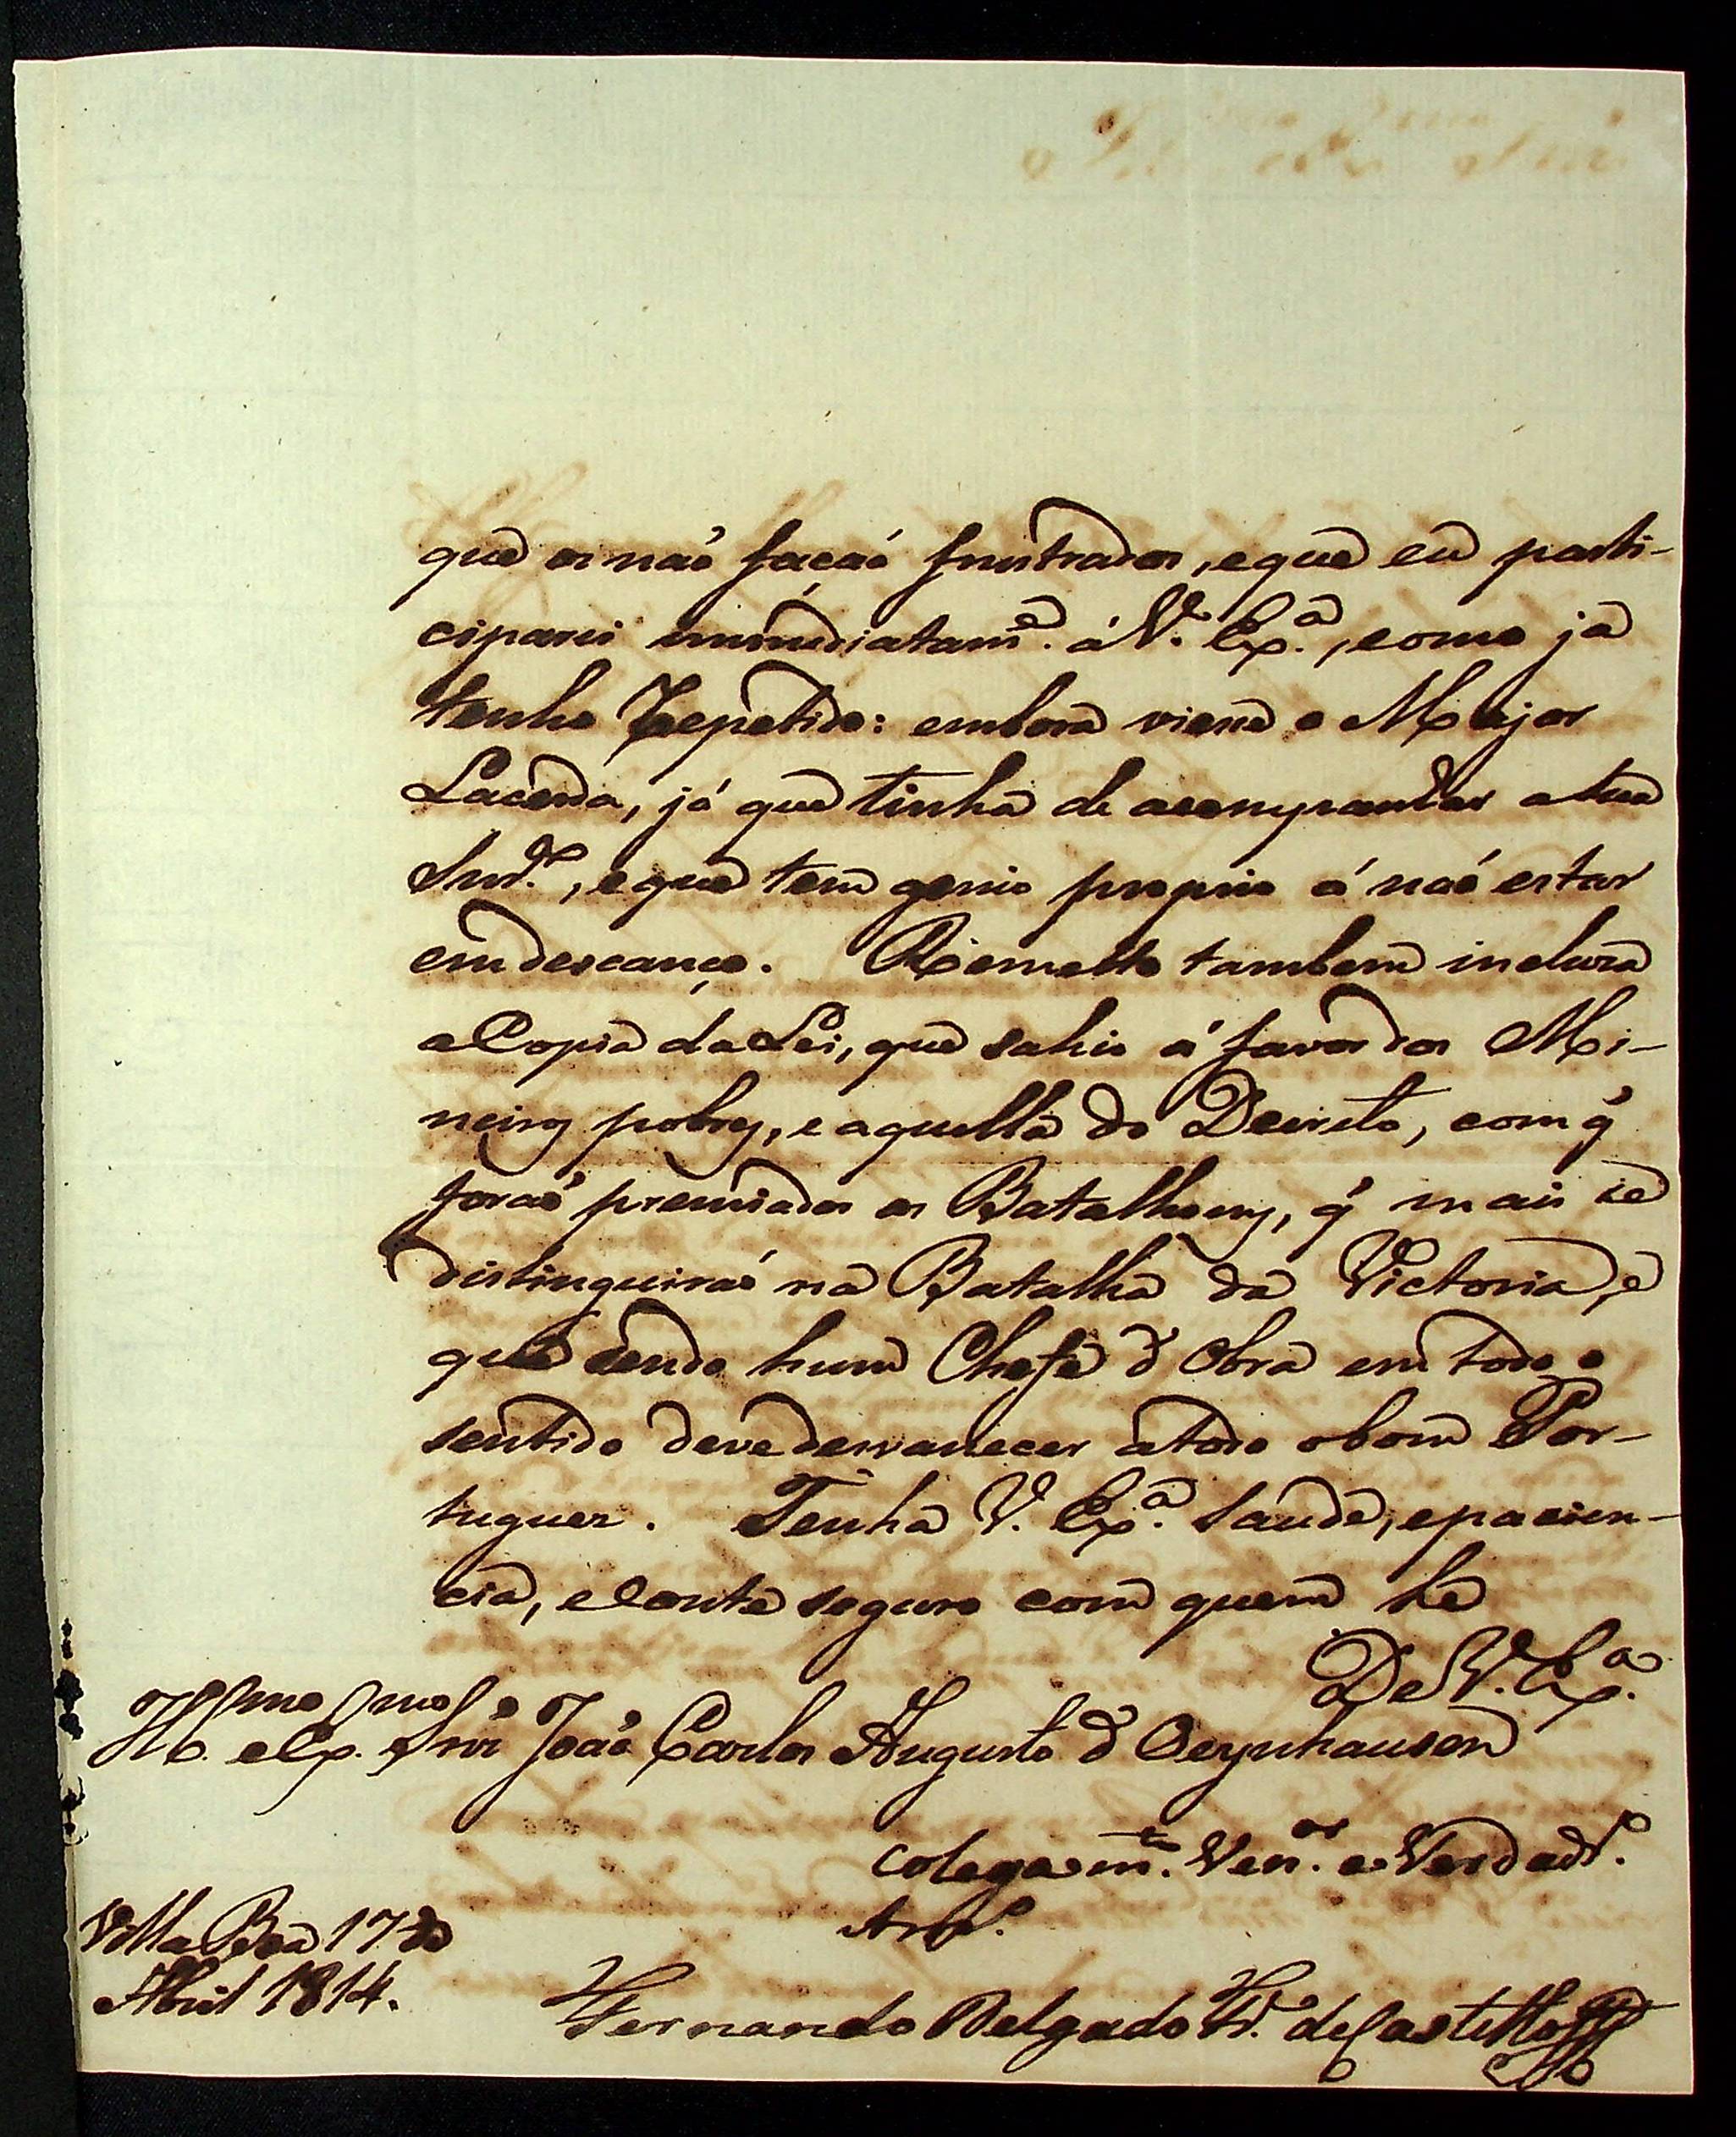 que os naõ façaõ frustrados, e que eu parti-
ciparei immediatam.e á V. Ex.a, como já
tenho Repetido: embora viesse o Major
Lacerda, já que tinha de acompanhar a tua
, e que tem genio proprio á naõ estar
em descanço. Remetto tambem incluza
a Copia da Lei, que sahio á favor dos Mi-
neiros pobres, e aquella do Decreto, com q̃
foraõ premiados os Batalhoens, q̃ mais se
distinguiraõ na Batalha da Victoria, e
que sendo hum Chefe d' Obra em todo o
sentido deve desvanecer a todo o bom Por-
tuguez. Tenha V. Ex.a saude, e pacien-
cia, e Conte seguro com quem he
De V. Ex.a
Ill.mo e Ex.mo Snr̃ Joaõ Carlos Augusto d' Oeynhausen
Colega m.to Ven.or e Verdad.o
Am.o
Villa Boa 17 de
Abril 1814.
Fernando Delgado Fr.e de Castilho